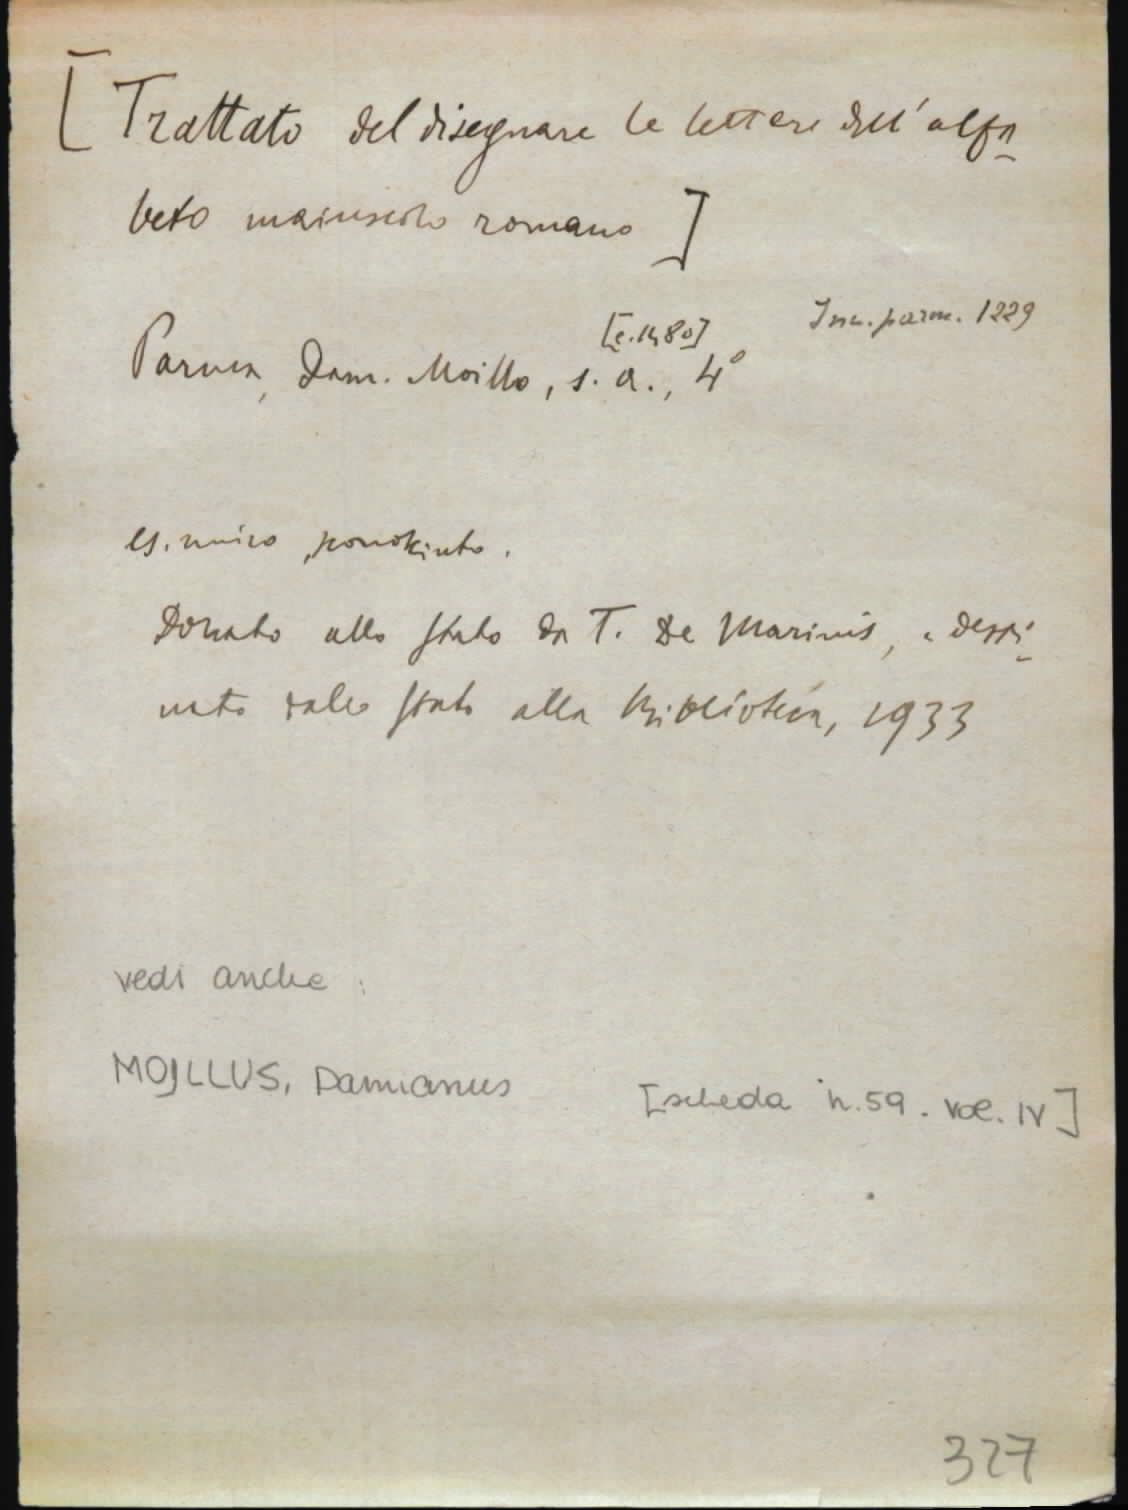 [Trattato del disegnare le lettere dell'alfa-
beto maiuscolo romano]
Inc. parm. 1229
[c. 1480]
Parma, Dam. Moillo, s. a., 4°
es. unico, sconosciuto.
Donato allo Stato da T. De Marinis, e desti-
nato dallo Stato alla Biblioteca, 1933
vedi anche :
MOJLLUS, Damianus [scheda n. 59. vol. IV]
327